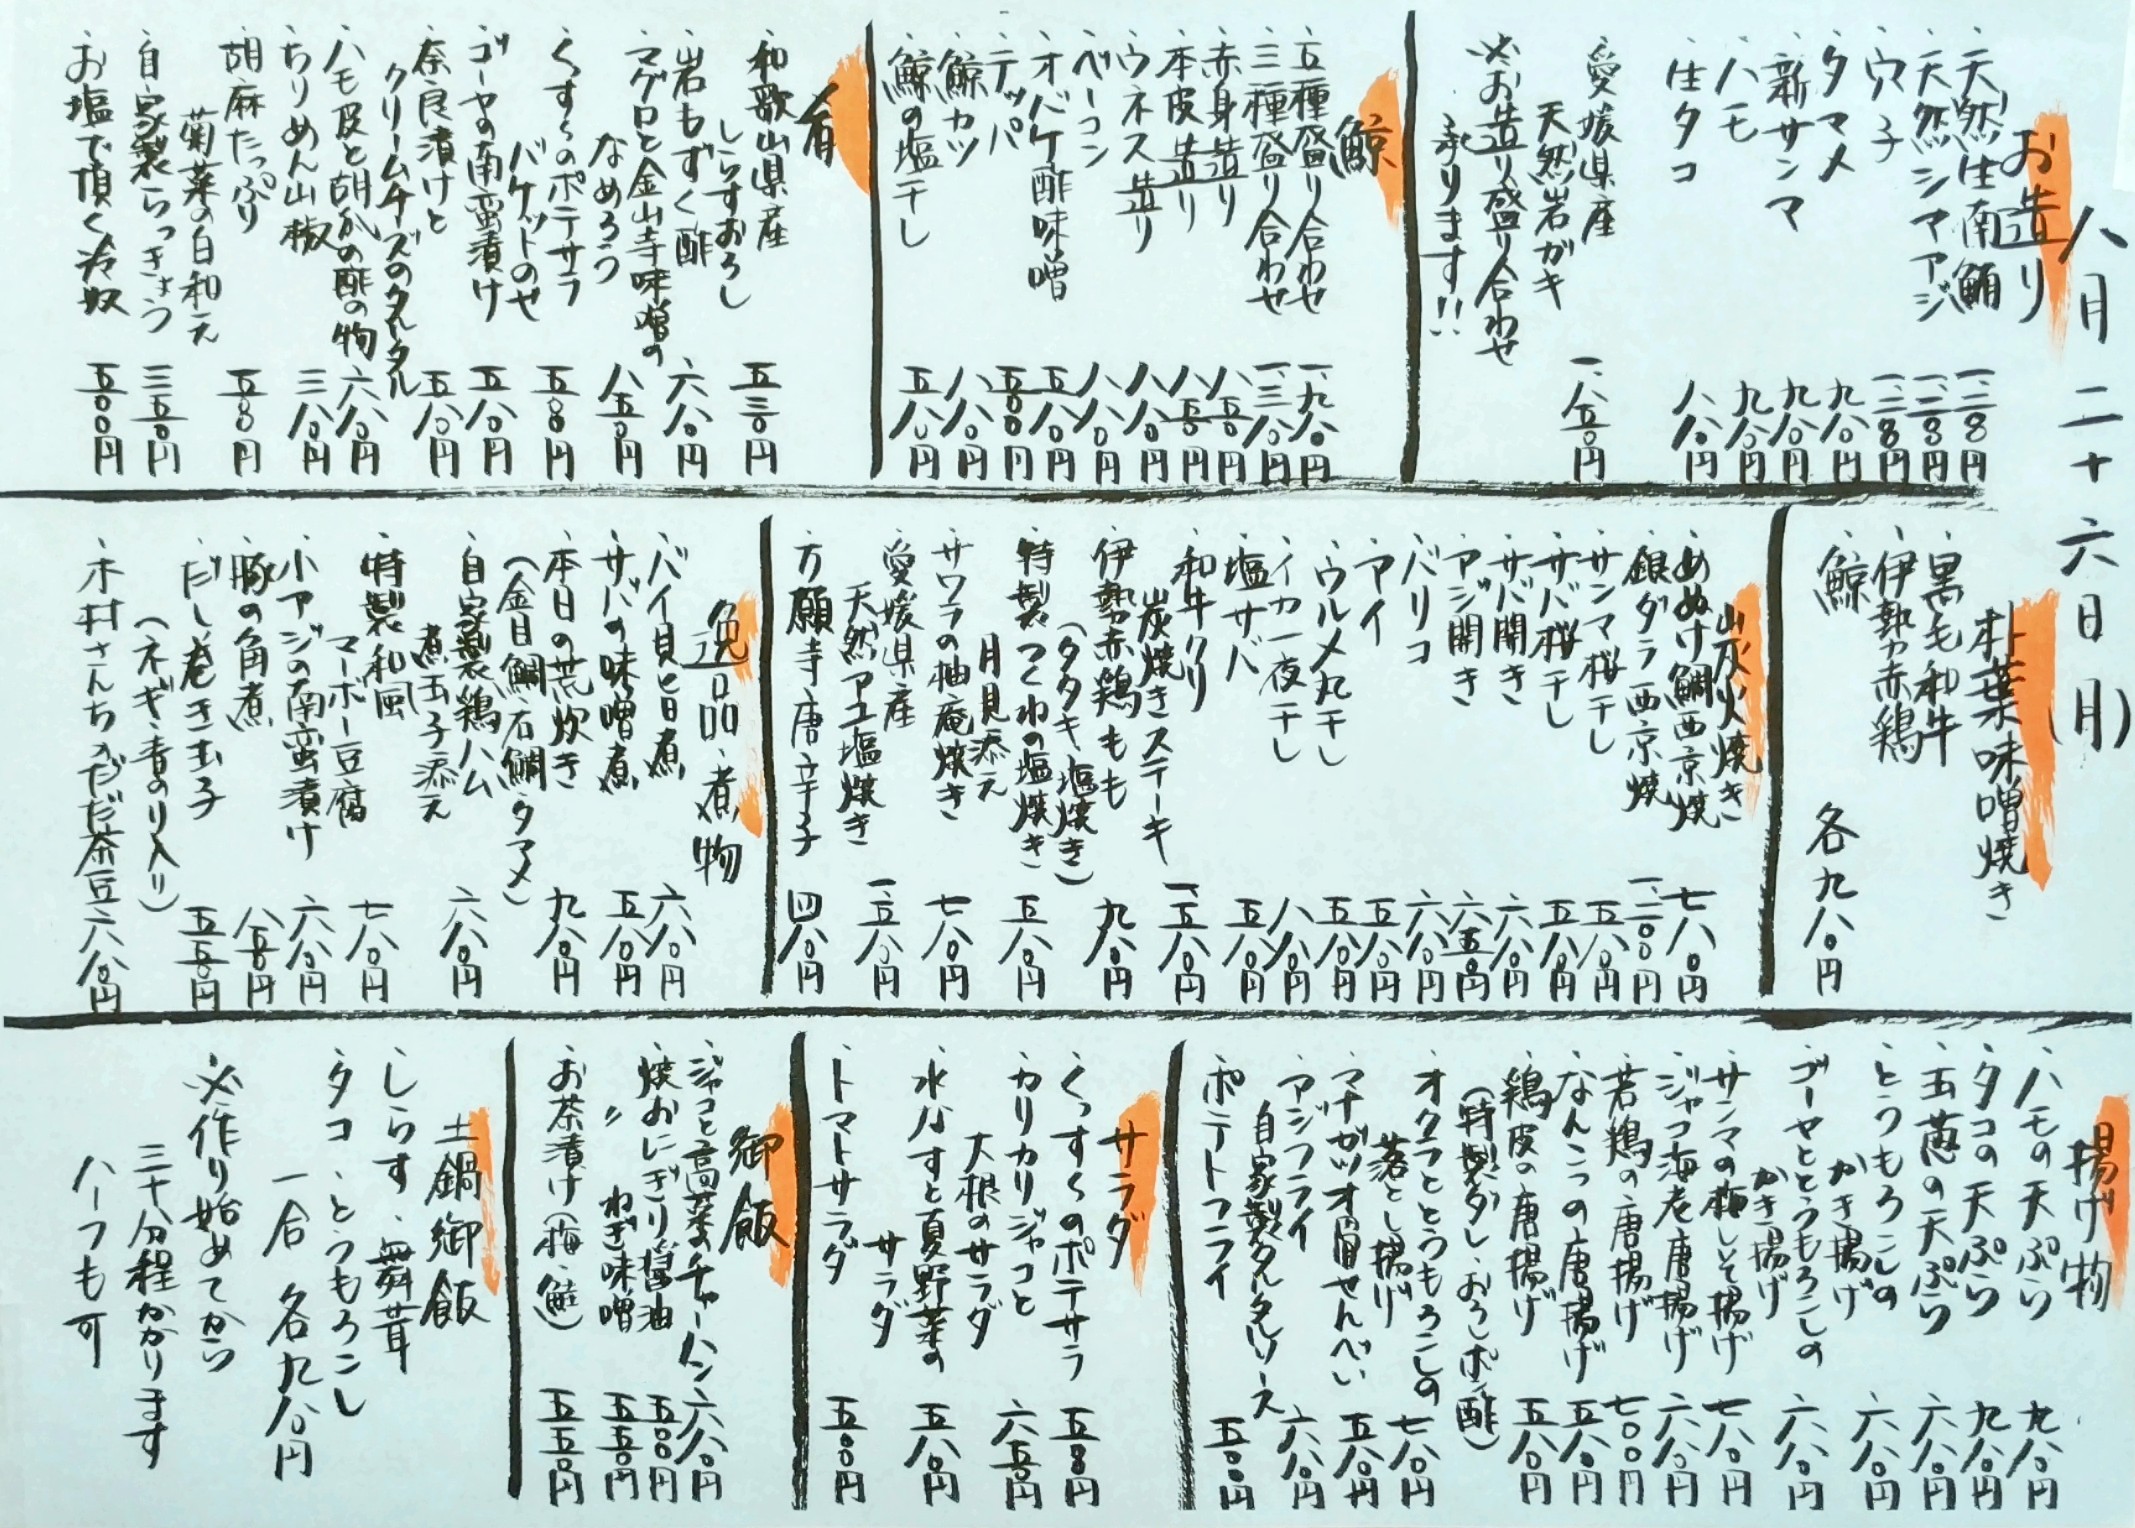 八月二十六日(月)
お造り
・天然生南鮪 一、二八〇円
・天然シマアジ 一、二八〇円
・穴子 一、二八〇円
・タマメ 九八〇円
・新サンマ 九八〇円
・ハモ 九八〇円
・生タコ 八八〇円
・愛媛県産
天然岩ガキ 一、八五〇円
※お造り盛り合わせ
承ります!!
鯨
・五種盛り合わせ 一、九八〇円
・三種盛り合わせ 一、三八〇円
・赤身造り 八五〇円
・本皮造り 八五〇円
・ウネス造り 八八〇円
・ベーコン 八八〇円
・オバケ酢味噌 五八〇円
・テッパ 五〇〇円
・鯨カツ 八八〇円
・鯨の塩干し 五八〇円
肴
・和歌山県産
しらすおろし 五三〇円
・岩もずく酢 六八〇円
・マグロと金山寺味噌の
なめろう 八五〇円
・くすくのポテサラ
バケットのせ 五八〇円
・ゴーヤの南蛮漬け 五八〇円
・奈良漬けと
クリームチーズのタルタル 五八〇円
・ハモ皮と胡瓜の酢の物 六八〇円
・ちりめん山椒 三八〇円
・胡麻たっぷり
菊菜の白和え 五八〇円
・自家製らっきょう 三五〇円
・お塩で頂く冷奴 五〇〇円
朴葉味噌焼き
・黒毛和牛
・伊勢赤鶏
・鯨
各九八〇円
炭火焼き
・めぬけ鯛西京焼 七八〇円
・銀ダラ西京焼 一、二〇〇円
・サンマ桜干し 五八〇円
・サバ桜干し 五八〇円
・サバ開き 六八〇円
・アジ開き 六五〇円
・バリコ 六八〇円
・アイ 五八〇円
・ウルメ丸干し 五八〇円
・イカ一夜干し 八八〇円
・塩サバ 五八〇円
・和牛クリ
炭焼きステーキ 一、五八〇円
・伊勢赤鶏もも
(タタキ・塩焼き) 九八〇円
・特製つくねの塩焼き
月見添え 五八〇円
・サワラの柚庵焼き 七八〇円
・愛媛県産
天然アユ塩焼き 一、五八〇円
・万願寺唐辛子 四八〇円
逸品・煮物
・バイ貝旨煮 六八〇円
・サバの味噌煮 五八〇円
・本日の荒炊き
(金目鯛・石鯛・タマメ) 九八〇円
・自家製鶏ハム
煮玉子添え 六八〇円
・特製和風
マーボー豆腐 七八〇円
・小アジの南蛮漬け 六八〇円
・豚の角煮 八五〇円
・だし巻き玉子
(ネギ・青のり入り) 五五〇円
・木村さんちのだだ茶豆 六八〇円
揚げ物
・ハモの天ぷら 九八〇円
・タコの天ぷら 九八〇円
・玉葱の天ぷら 六八〇円
・とうもろこしの
かき揚げ 六八〇円
・ゴーヤととうもろこしの
かき揚げ 六八〇円
・サンマの梅しそ揚げ 七八〇円
・ジャコ海老唐揚げ 六八〇円
・若鶏の唐揚げ 七〇〇円
・なんこつの唐揚げ 五八〇円
・鶏皮の唐揚げ 五八〇円
(特製ダレ・おろしポン酢)
・オクラととうもろこしの
落とし揚げ 七八〇円
・マナガツオ骨せんべい 五八〇円
・アジフライ
自家製タルタルソース 六八〇円
・ポテトフライ 五〇〇円
サラダ
・くっすくのポテサラ 五八〇円
・カリカリジャコと
大根のサラダ 六五〇円
・水ナスと夏野菜の
サラダ 五八〇円
・トマトサラダ 五〇〇円
御飯
・ジャコと高菜のチャーハン 六八〇円
・焼おにぎり醤油 五〇〇円
〃 ねぎ味噌 五五〇円
・お茶漬け(梅・鮭) 五五〇円
土鍋御飯
・しらす・舞茸
・タコ・とうもろこし
一合 各九八〇円
※作り始めてから
三十分程かかります
ハーフも可